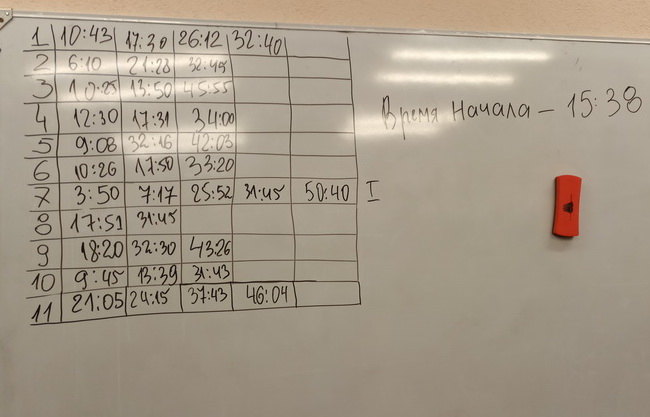 1 10:43 17:30 26:12 32:40
2 6:10 21:28 32:45
3 10:25 13:50 45:55
4 12:30 17:31 34:00
5 9:08 32:16 42:03
6 10:26 17:50 33:20
7 3:50 7:17 25:52 31:45 50:40 I
8 17:51 31:45
9 18:20 32:30 43:26
10 9:45 13:39 31:43
11 21:05 24:15 37:43 46:04
Время Начала – 15:38